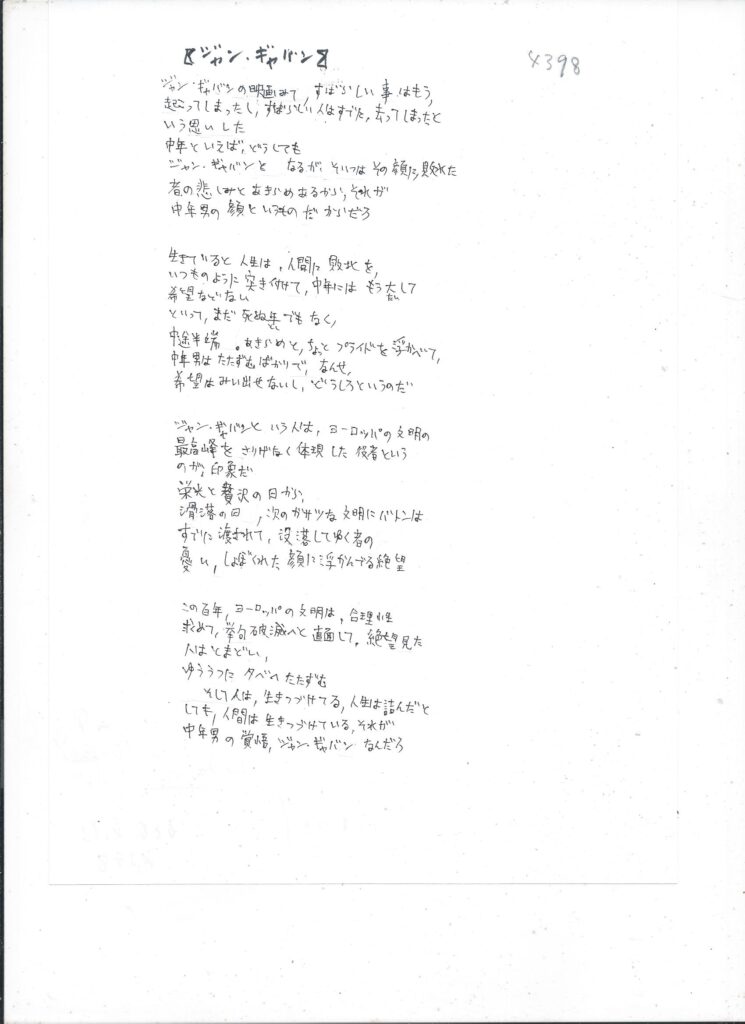 【ジャン・ギャバン】
4398
ジャン・ギャバンの映画みて、すばらしい事はもう、
起こってしまったし、すばらしい人はすでに、去ってしまったと
いう思いした
中年といえば、どうしても
ジャン・ギャバンと なるが、そいつは その顔に、敗れた
者の悲しみとあきらめあるから、それが
中年男の 顔というもの だ からだろ
生きていると 人生は、人間に 敗北を、
いつものように 突き付けて、中年には もう大して
希望などない
だ
といって、まだ 死ぬ年でもなく、
中途半端 。あきらめと、ちょっと プライドを浮かべて、
中年男は たたずむばかりで、なんせ、
希望は みい出せないし、どうしろというのだ
ジャン・ギャバンと いう人は、ヨーロッパの文明の
最高峰を さりげなく 体現した 役者という
のが、印象だ
栄光と贅沢の日から、
滑落の日 、次のガサツな文明にバトンは
すでに渡されて、没落してゆく者の
憂い、しょぼくれた 顔に浮かんでる絶望
この百年、ヨーロッパの文明は、合理性
求めて、挙句破滅へと直面して。絶望見た
人はとまどい、
ゆううつに 夕べに たたずむ
そして人は、生きつづけてる、人生は詰んだと
しても、人間は 生きつづけている、それが
中年男の覚悟、ジャン・ギャバン なんだろ